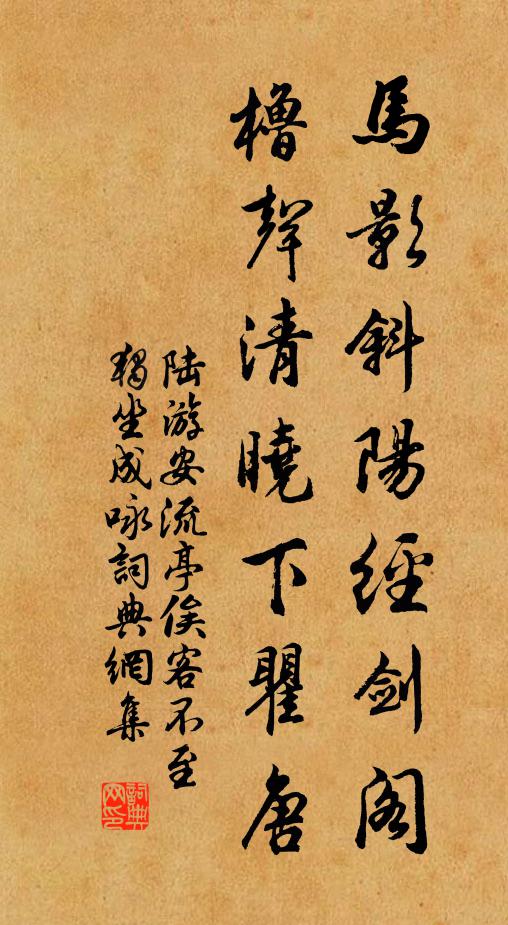 馬影斜陽經劍閣
櫓聲清曉下瞿唐
陆游安流亭俟客不至
獨坐成咏詞典網集
詞典
网印